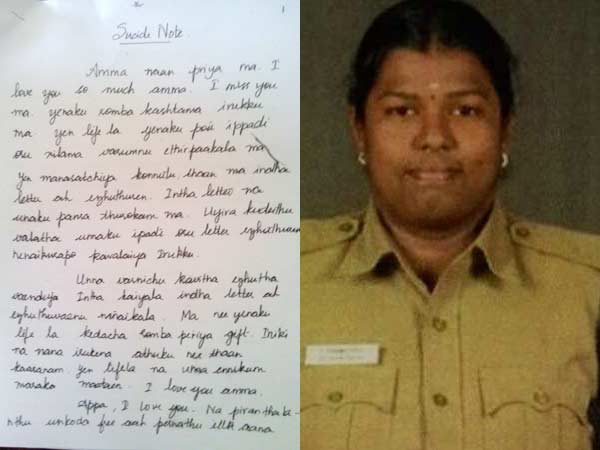 1
Sucide Note.
Amma naan priya ma. I
love you so much amma. I miss you
ma. yenaku romba kashtama irukku
ma yen life la yenaku poi ippadi
oru nilama varumnu ethirpaakala ma
yen manasatchiya konnutu thaan ma indha
letter ah ezhuthuren. Intha letter na
unaku panra thurokam ma.
valatha unaku ipadi oru letter ezhuthuren
kavalaiya Irukku.
Unna varnichu kavitha ezhutha
vendiya Intha kaiyala indha letter ah
ezhuthuvaenu ninaikala. Ma nee yenaku
life la kedacha romba periya gift. Iniki
na nana iruken athuku nee thaan
kaaranam yen lifela na unna ennikum
maraka maaten. I love you amma.
Appa, I love you. Na piranthathu-
nthu unkoda